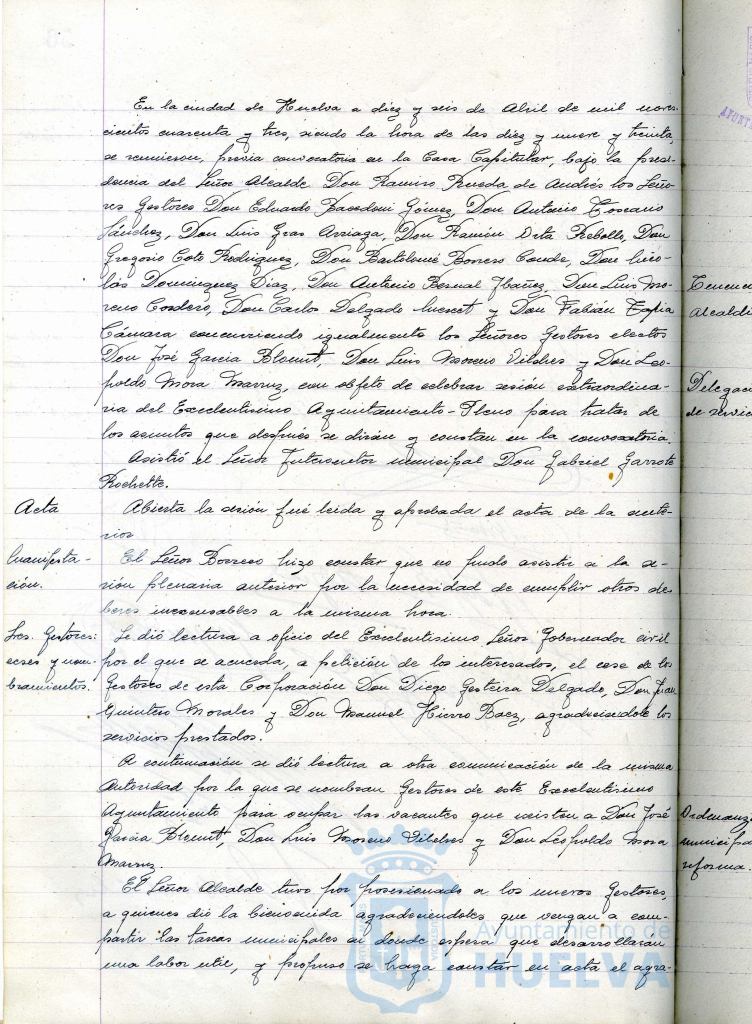 En la ciudad de Huelva a diez y seis de Abril de mil nove-
cientos cuarenta y tres, siendo la hora de las diez y nueve y treinta,
se reunieron, previa convocatoria en la Casa Capitular, bajo la presi-
dencia del Señor Alcalde Don Ramiro Rueda de Andrés los Seño-
res Gestores Don Eduardo Bacedoni Gómez, Don Antonio Toscano
Sánchez, Don Luis Gras Arriaga, Don Ramón Orta Rebollo, Don
Gregorio Coto Rodriguez, Don Bartolomé Borrero Conde, Don Nico-
lás Dominguez Díaz, Don Antonio Bernal Ybañez, Don Luis Mo-
reno Cordero, Don Carlos Delgado y Don Fabián Tapia
Cámara concurriendo igualmente los Señores Gestores electos
Don José Garcia Blomut, Don Luis Moreno Vilches y Don Leo-
poldo Mora Marruz, con objeto de celebrar sesión extraordina-
ria del Excelentisimo Ayuntamiento-Pleno para tratar de
los asuntos que después se dirán y constan en la convocatoria.
Asistió el Señor Interventor municipal Don Gabriel Garrote
Rochette.
Acta
Abierta la sesión fué leida y aprobada el acta de la ante-
rior
Manifesta-
ción.
El Señor Borrero hizo constar que no pudo asistir a la se-
sión plenaria anterior por la necesidad de cumplir otros de-
beres inexcusables a la misma hora.
Sres. Gestores:
ceses y nom-
bramientos.
Se dió lectura a oficio del Excelentisimo Señor Gobernador civil
por el que se acuerda, a petición de los interesados, el cese de los
Gestores de esta Corporación Don Diego Gesteira Delgado, Don Juan
Quintero Morales y Don Manuel Hierro Baez, agradeciendole los
servicios prestados.
A continuación se dió lectura a otra comunicación de la misma
Autoridad por la que se nombran Gestores de este Excelentisimo
Ayuntamiento para ocupar las vacantes que existen a Don José
Garcia Blomut, Don Luis Moreno Vilches y Don Leopoldo Mora
Marruz.
El Señor Alcalde tuvo por posesionado a los nuevos Gestores,
a quienes dió la bienvenida agradeciendoles que vengan a com-
partir las tareas municipales en donde espera que desarrollaran
una labor util, y propuso se haga constar en acta el agra-
Tenen
Alcaldí
Delegac
de servic
Ordenanz
municipa
reforma.
Ayuntamiento de
HUELVA